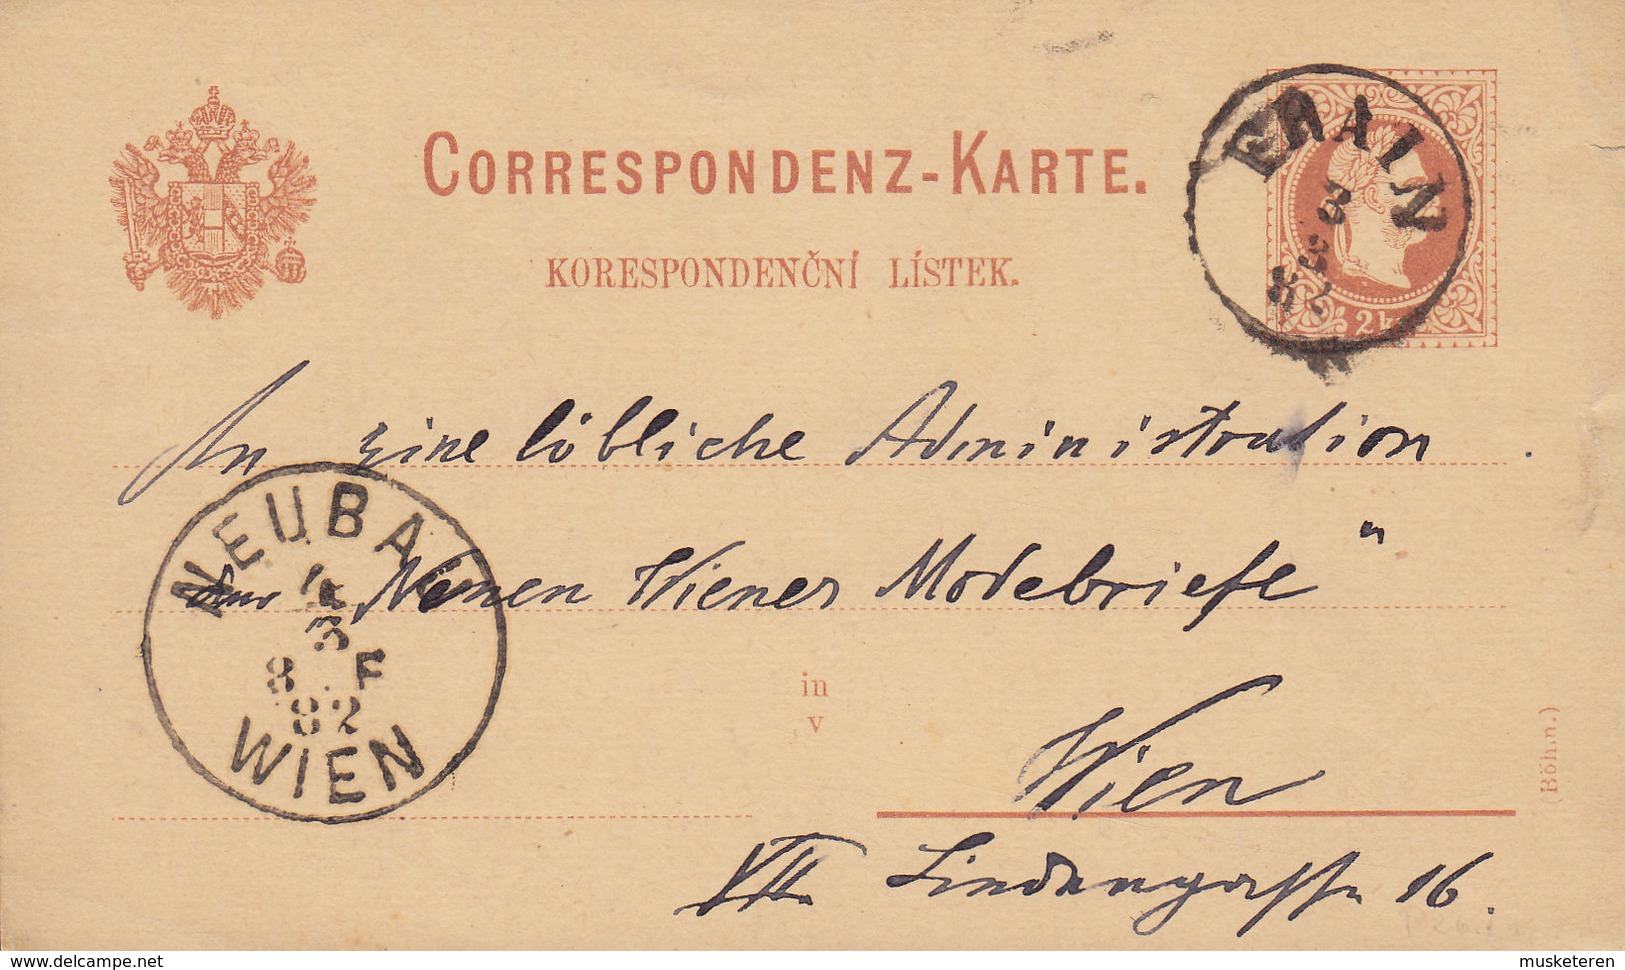 CORRESPONDENZ-KARTE.
KORESPONDENČNÍ LÍSTEK.
FRAIN
3
3
82
2 kr
An eine löbliche Administration
der Neuen Wiener Modebriefe"
NEUBAU
4
3
8 F
82
WIEN
in
v
Wien
VII. Lindengasse 16.
(Böhm.)
www.delcampe.net
musketeren